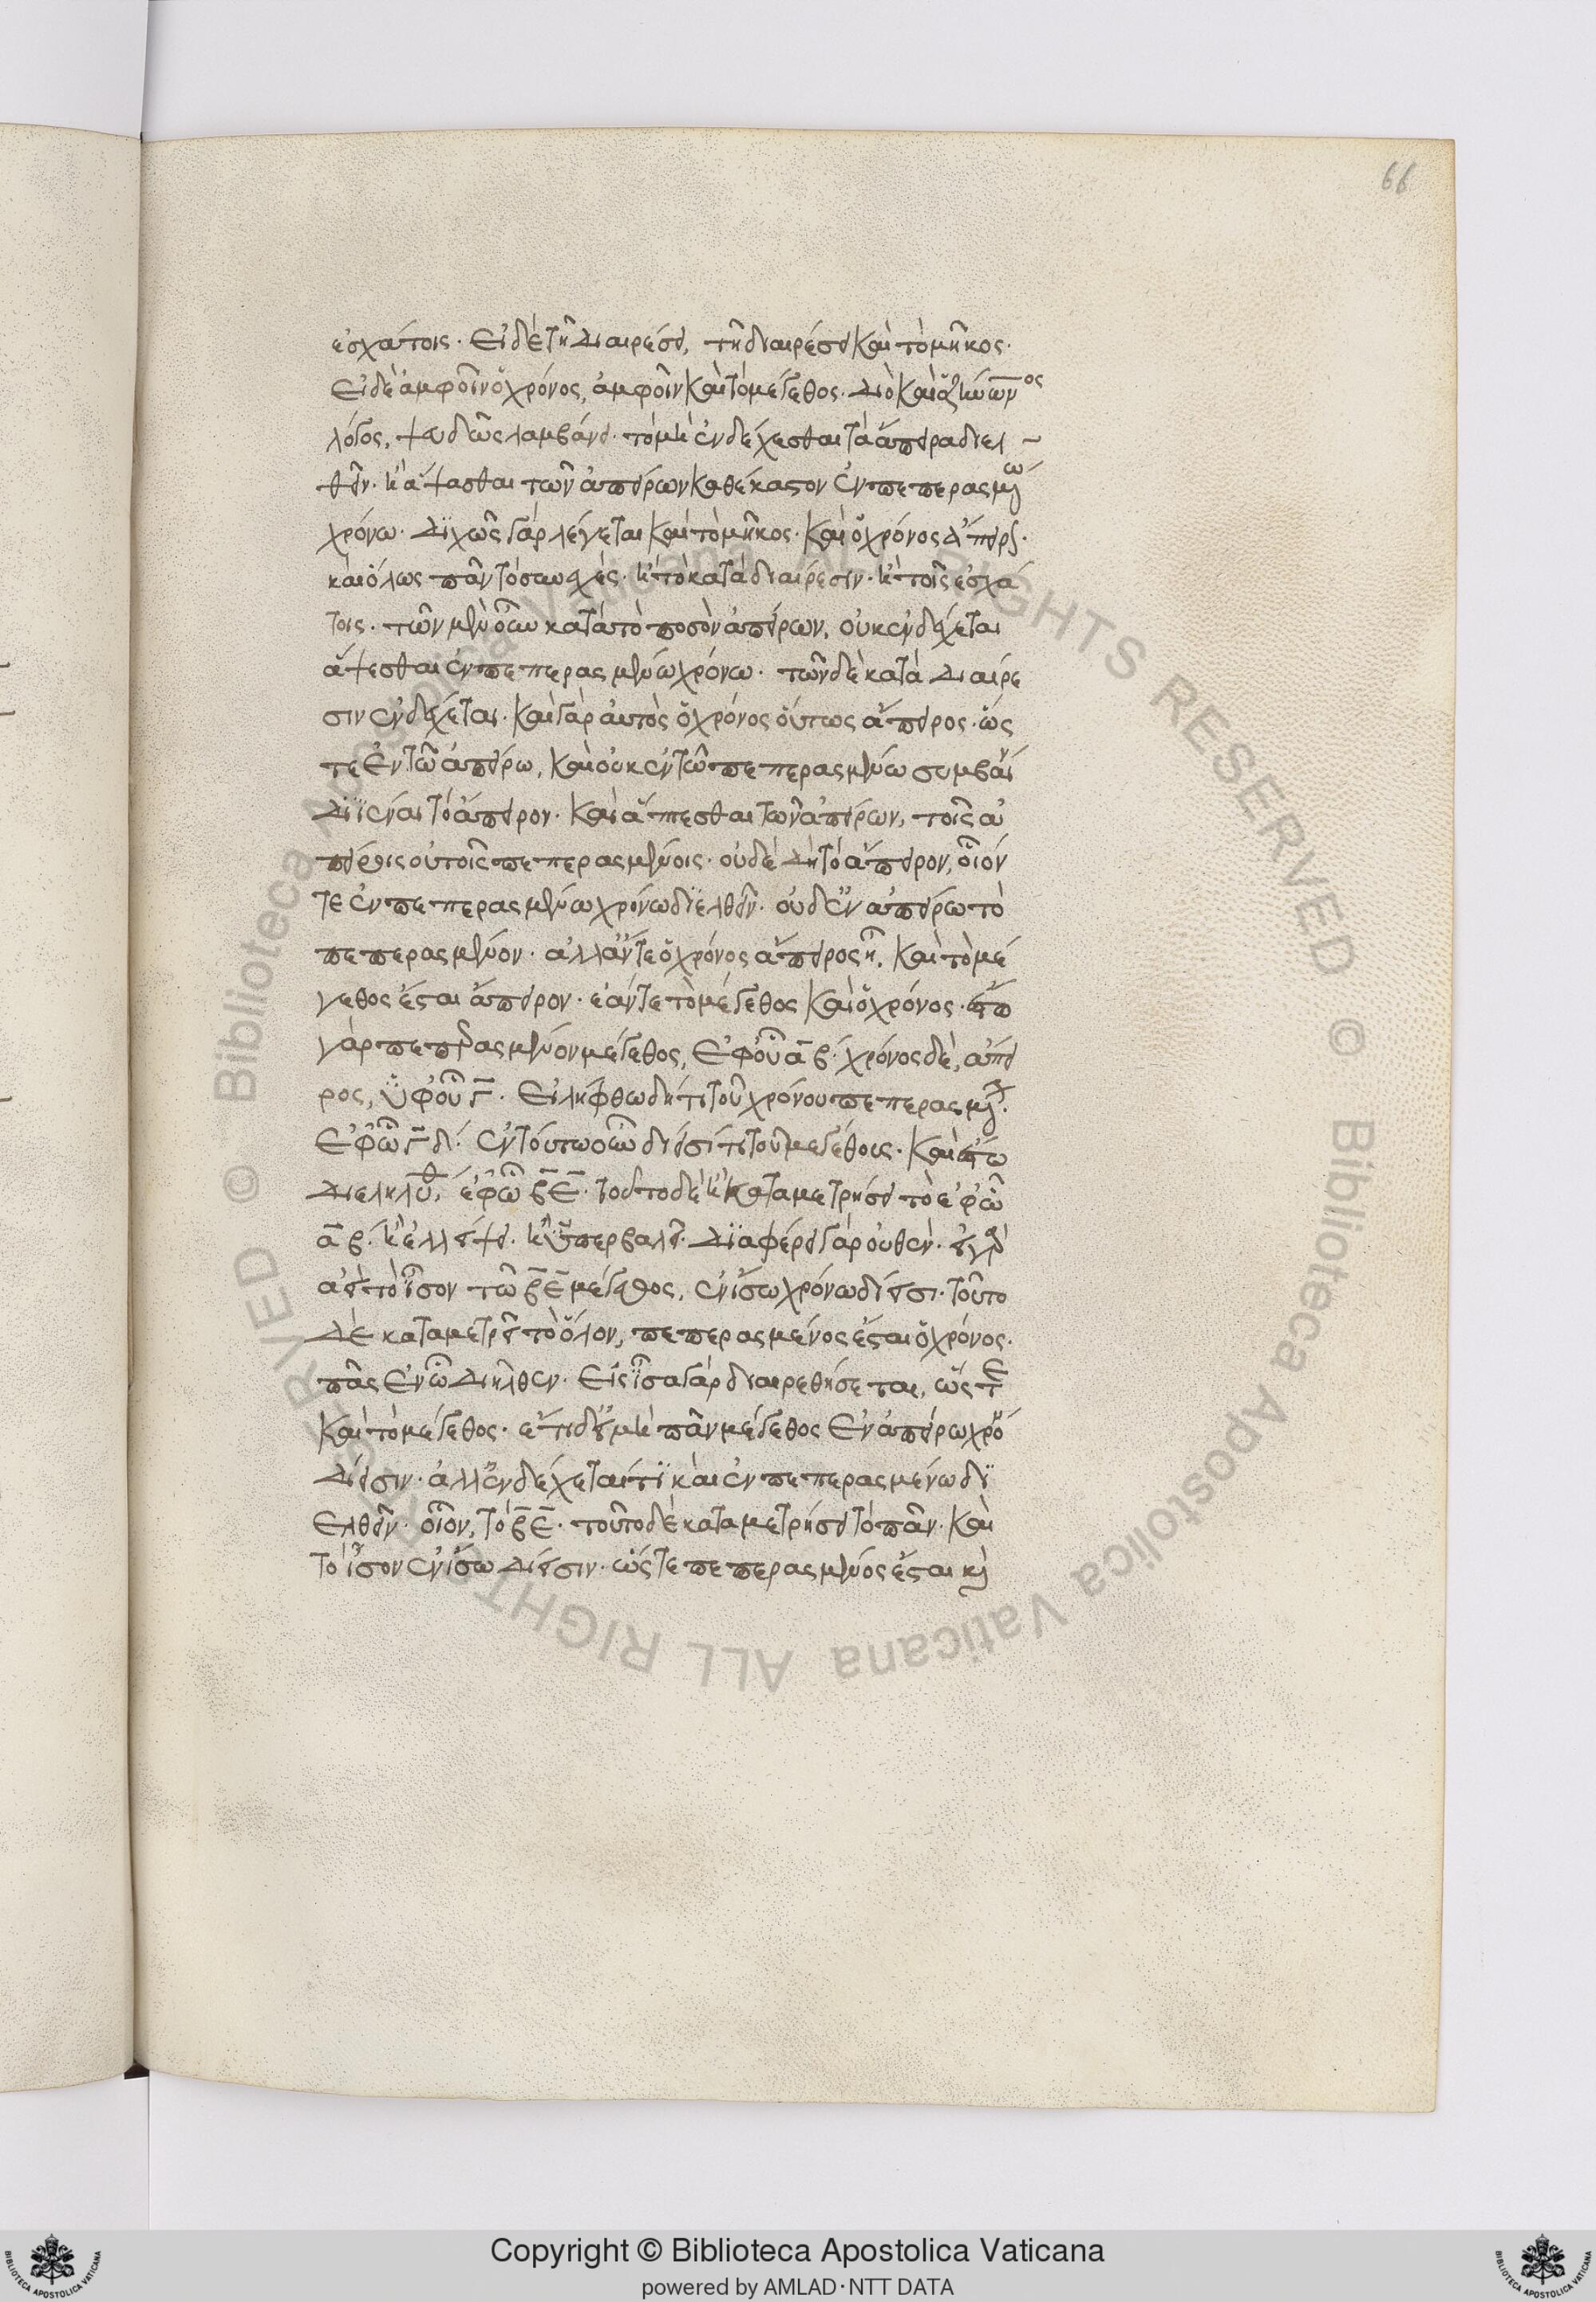 66
ἐσχάτοις· εἰ δὲ τῆ διαιρέσει, τῆ διαιρέσει καὶ τὸ μῆκος·
εἰ δὲ ἀμφοῖν ὁ χρόνος, ἀμφοῖν καὶ τὸ μέγεθος· διὸ καὶ ὁ ζήνωνος
λόγος, ψευδῶς λαμβάνει· τὸ μὴ ἐνδέχεσθαι τὰ ἄπειρα διελ
θεῖν· ἢ ἅψασθαι τῶν ἀπείρων καθέκαστον ἐν πεπερασμένω
χρόνω· διχῶς γὰρ λέγεται καὶ τὸ μῆκος· καὶ ὁ χρόνος ἄπειρος·
καὶ ὅλως πᾶν τὸ συνεχές· ἢ τὸ κατὰ διαίρεσιν· ἢ τοῖς ἐσχά
τοις· τῶν μὲν οὖν κατὰ τὸ ποσὸν ἀπείρων, οὐκ ἐνδέχεται
ἅψεσθαι ἐν πεπερασμένω χρόνω· τῶν δὲ κατὰ διαίρε
σιν ἐνδέχεται· καὶ γὰρ αὐτὸς ὁ χρόνος οὕτως ἄπειρος· ὥς
τε ἐν τῶ ἀπείρω, καὶ οὐκ ἐν τῶ πεπερασμένω συμβαίνει
διϊέναι τὸ ἄπειρον· καὶ ἅπτεσθαι τῶν ἀπείρων, τοῖς ἀ
πείροις οὐ τοῖς πεπερασμένοις· οὐδὲ δὴ τὸ ἄπειρον, οἷόν
τε ἐν πεπερασμένω χρόνω διελθεῖν· οὐδ' ἐν ἀπείρω τὸ
πεπερασμένον· ἀλλ' ἄν τε ὁ χρόνος ἄπειρος ἦ, καὶ τὸ μέ
γεθος ἔσται ἄπειρον· ἐάν τε τὸ μέγεθος καὶ ὁ χρόνος· ἔστω
γὰρ πεπερασμένον μέγεθος, ἐφ' οὗ αβ· χρόνος δὲ, ἄπει
ρος, ἐφ' οὗ γ· εἰλήφθω δή τι τοῦ χρόνου πεπερασμένον·
ἐφ' ὧ γδ· ἐν τούτω οὖν δίεισί τι τοῦ μεγέθους· καὶ ἔστω
διεληλυθ, ἐφ' ὧ βε· τοῦτο δὲ ἢ καταμετρήσει τὸ ἐφ' ὧ
αβ· ἢ ἐλλείψει· ἢ ὑπερβαλεῖ· διαφέρει γὰρ οὐθέν· εἰ γὰρ
ἀεὶ τὸ ἴσον τῶ βε μέγεθος, ἐν ἴσω χρόνω δίεισι· τοῦτο
δὲ καταμετρεῖ τὸ ὅλον, πεπερασμένος ἔσται ὁ χρόνος·
πᾶς ἐν ὧ διῆλθεν· εἰς ἴσα γὰρ διαιρεθήσεται, ὥς τε
καὶ τὸ μέγεθος· ἔτι δ' εἰ μὴ πᾶν μέγεθος ἐν ἀπείρω χρό
δίεισιν· ἀλλ' ἐνδέχεταί τι καὶ ἐν πεπερασμένω δι
ελθεῖν· οἷον, τὸ βε· τοῦτο δὲ καταμετρήσει τὸ πᾶν· καὶ
τὸ ἴσον ἐν ἴσω δίεισιν· ὥς τε πεπερασμένος ἔσται καὶ
© Biblioteca Apostolica Vaticana ALL RIGHTS RESERVED © Biblioteca Apostolica Vaticana ALL RIGHTS RESERVED
Copyright © Biblioteca Apostolica Vaticana
powered by AMLAD·NTT DATA
BIBLIOTECA APOSTOLICA VATICANA
BIBLIOTECA APOSTOLICA VATICANA